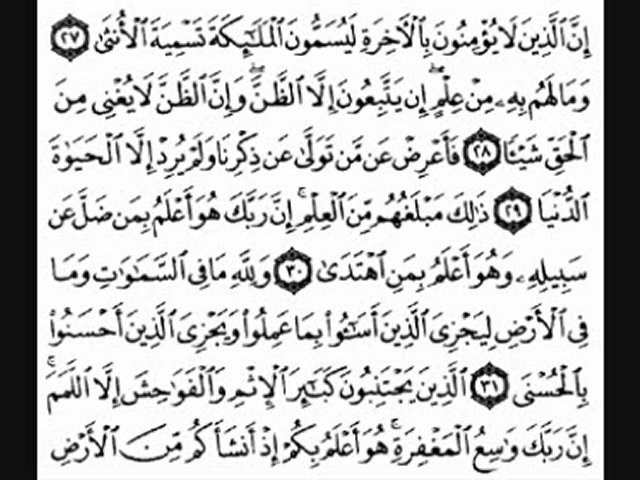 إِنَّ ٱلَّذِينَ لَا يُؤْمِنُونَ بِٱلْـَٔاخِرَةِ لَيُسَمُّونَ ٱلْمَلَـٰٓئِكَةَ تَسْمِيَةَ ٱلْأُنثَىٰ ٢٧
وَمَا لَهُم بِهِۦ مِنْ عِلْمٍ ۖ إِن يَتَّبِعُونَ إِلَّا ٱلظَّنَّ ۖ وَإِنَّ ٱلظَّنَّ لَا يُغْنِى مِنَ
ٱلْحَقِّ شَيْـًٔا ٢٨ فَأَعْرِضْ عَن مَّن تَوَلَّىٰ عَن ذِكْرِنَا وَلَمْ يُرِدْ إِلَّا ٱلْحَيَوٰةَ
ٱلدُّنْيَا ٢٩ ذَٰلِكَ مَبْلَغُهُم مِّنَ ٱلْعِلْمِ ۚ إِنَّ رَبَّكَ هُوَ أَعْلَمُ بِمَن ضَلَّ عَن
سَبِيلِهِۦ وَهُوَ أَعْلَمُ بِمَنِ ٱهْتَدَىٰ ٣٠ وَلِلَّهِ مَا فِى ٱلسَّمَـٰوَٰتِ وَمَا
فِى ٱلْأَرْضِ لِيَجْزِىَ ٱلَّذِينَ أَسَـٰٓـُٔوا۟ بِمَا عَمِلُوا۟ وَيَجْزِىَ ٱلَّذِينَ أَحْسَنُوا۟
بِٱلْحُسْنَى ٣١ ٱلَّذِينَ يَجْتَنِبُونَ كَبَـٰٓئِرَ ٱلْإِثْمِ وَٱلْفَوَٰحِشَ إِلَّا ٱللَّمَمَ ۚ
إِنَّ رَبَّكَ وَٰسِعُ ٱلْمَغْفِرَةِ ۚ هُوَ أَعْلَمُ بِكُمْ إِذْ أَنشَأَكُم مِّنَ ٱلْأَرْضِ